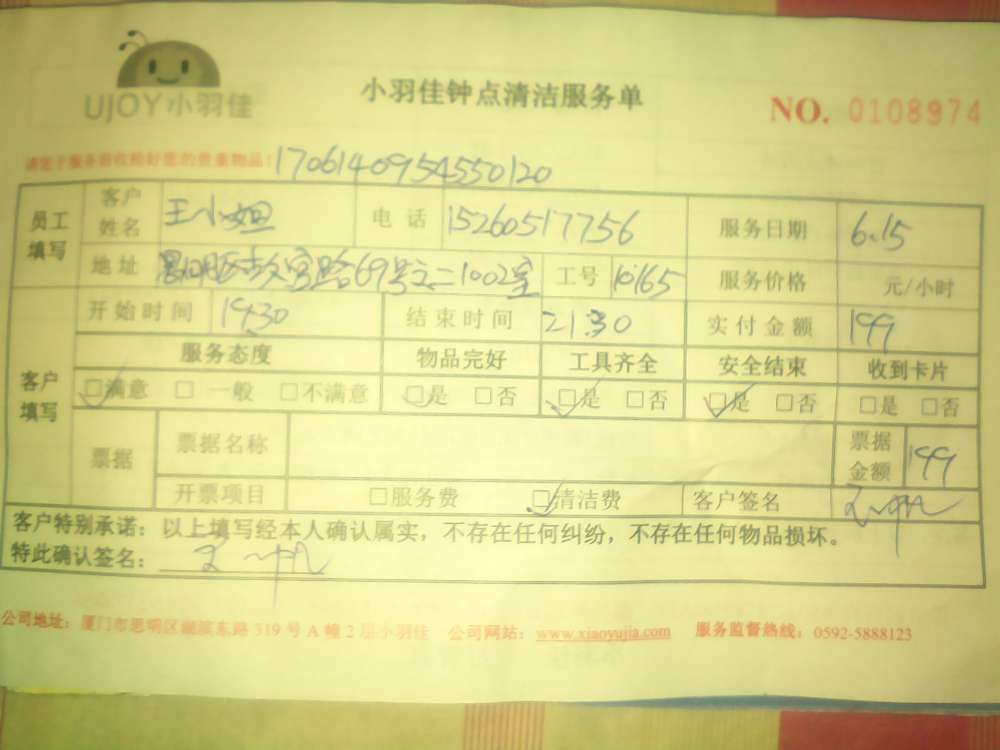 UJOY小羽佳
小羽佳钟点清洁服务单
NO. 0108974
请您于服务前收检好您的贵重物品! 1706140954550120
员工填写 客户姓名 王小姐 电话 15260517756 服务日期 6.15
地址 路69号之二1002室 工号 10165 服务价格 元/小时
客户填写 开始时间 19:30 结束时间 21:30 实付金额 199
服务态度 物品完好 工具齐全 安全结束 收到卡片
□满意 □一般 □不满意 □是 □否 □是 □否 □是 □否 □是 □否
票据 票据名称 票据金额 199
开票项目 □服务费 □清洁费 客户签名
客户特别承诺:以上填写经本人确认属实,不存在任何纠纷,不存在任何物品损坏。
特此确认签名:
公司地址:厦门市思明区湖滨东路319号A幢2层小羽佳 公司网站:www.xiaoyujia.com 服务监督热线:0592-5888123